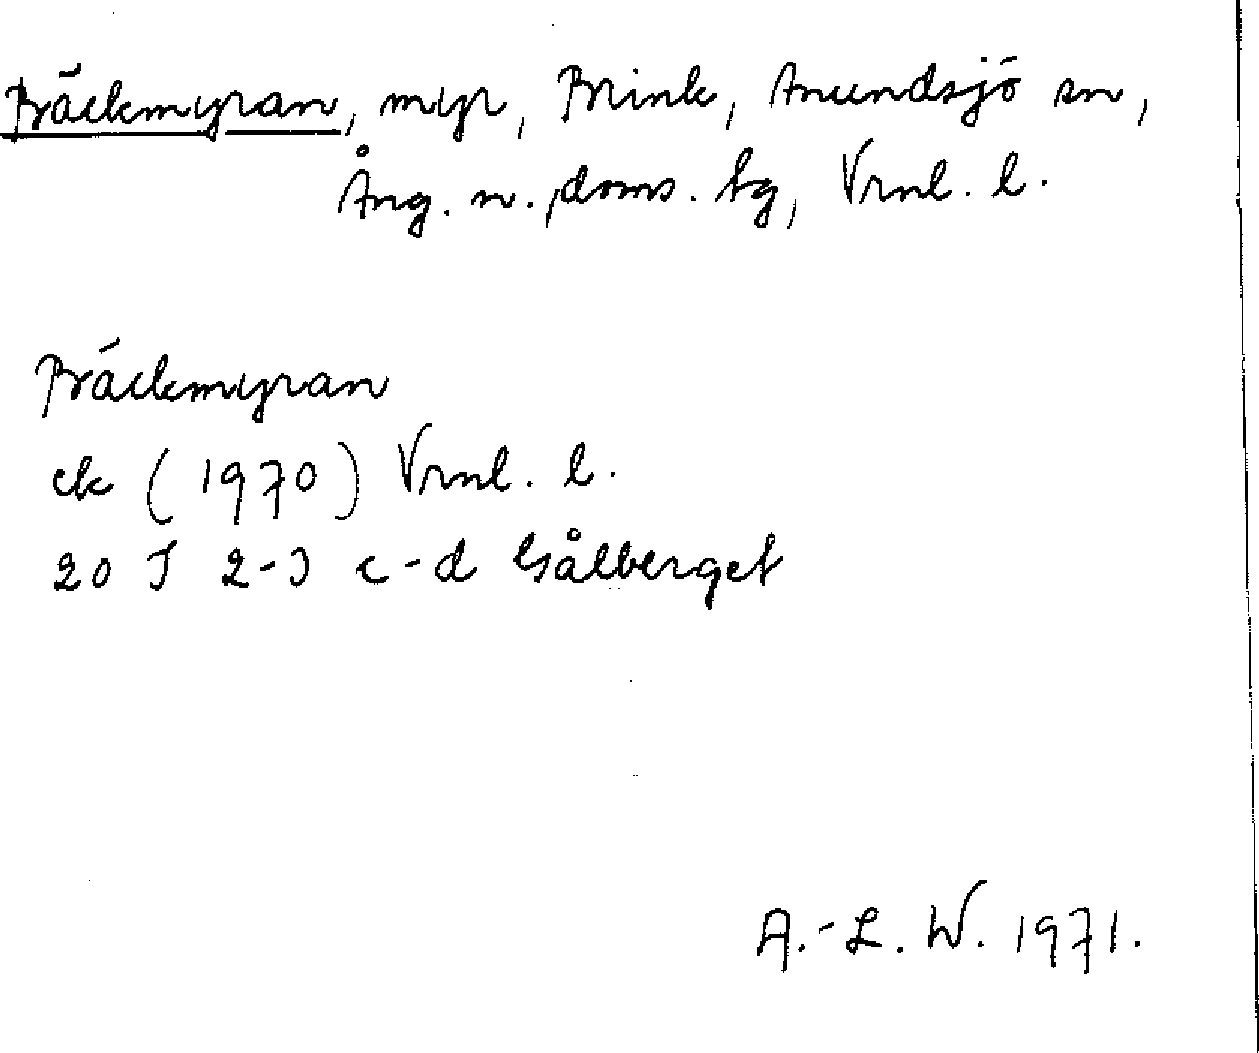 Bäckmyran, myr, Brink, Anundsjö sn,
Ång. n. doms. tg, Vrnl. l.
Bäckmyran
ek (1970) Vrnl. l.
20 J 2-3 c-d Gålberget
A.-L. W. 1971.